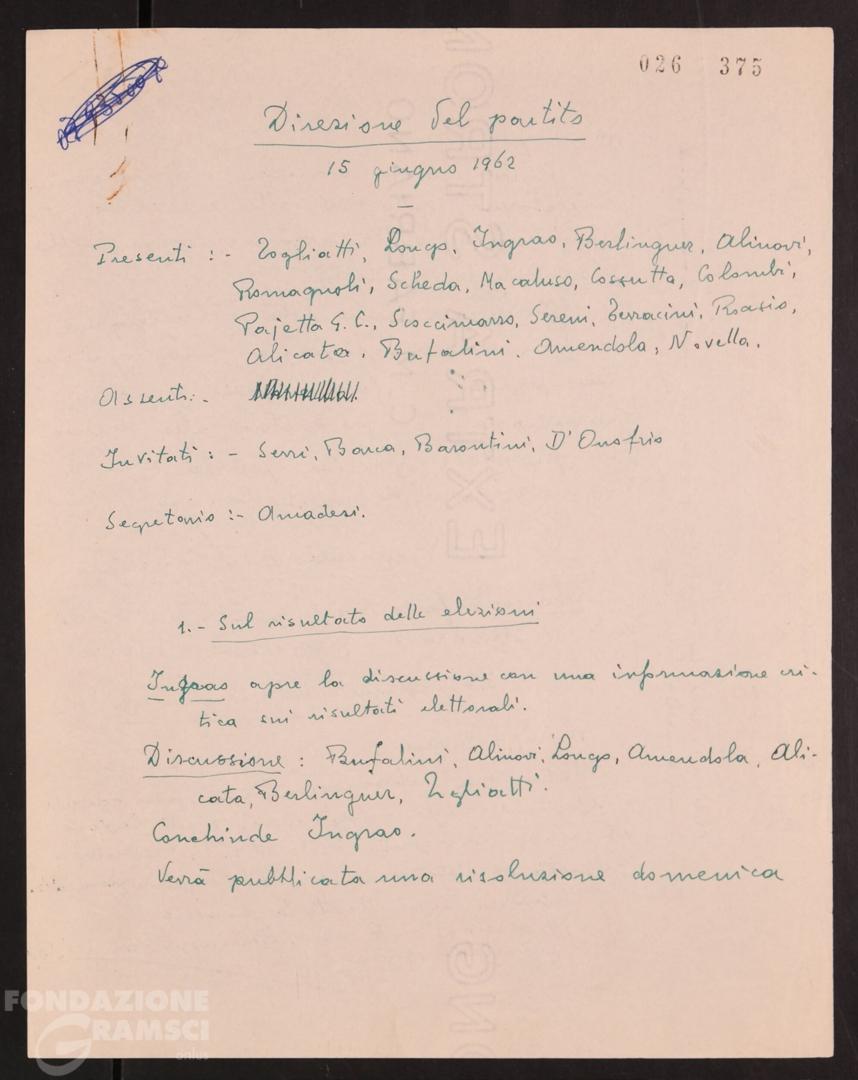 026 375
Direzione del partito
15 giugno 1962
Presenti :- Togliatti, Longo, Ingrao, Berlinguer, Alinovi,
Romagnoli, Scheda, Macaluso, Cossutta, Colombi,
Pajetta G. C., Scoccimarro, Sereni, Terracini, Roasio,
Alicata, Bufalini, Amendola, Novella.
Assenti:-
Invitati :- Serri, Barca, Barontini, D'Onofrio
Segretario :- Amadesi.
1.- Sul risultato delle elezioni
Ingrao apre la discussione con una informazione cri-
tica sui risultati elettorali.
Discussione : Bufalini, Alinovi, Longo, Amendola, Ali-
cata, Berlinguer, Togliatti.
Conchiude Ingrao.
Verrà pubblicata una risoluzione domenica
FONDAZIONE
GRAMSCI
onlus